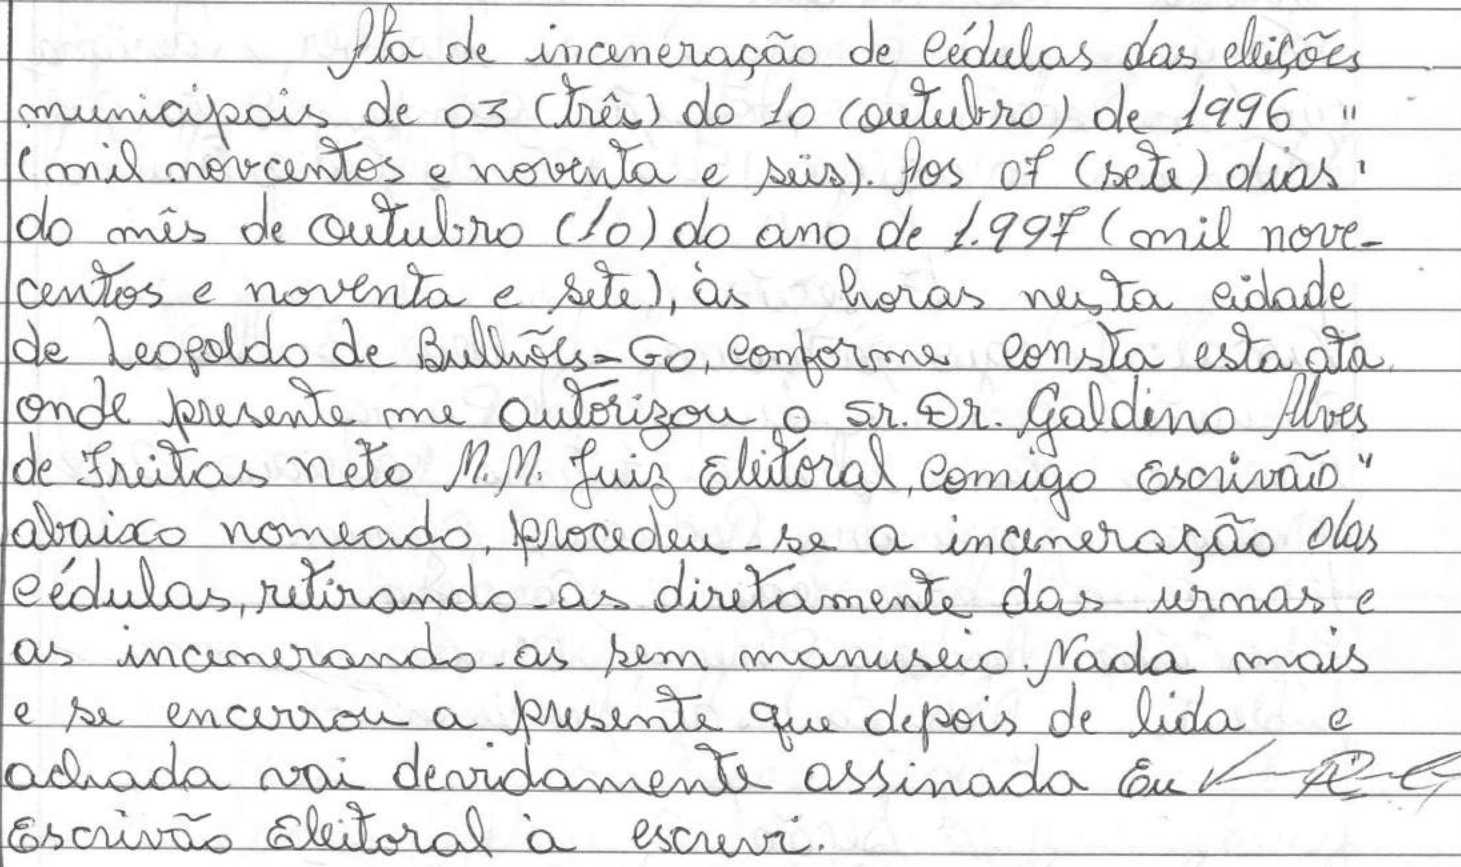 Ata de incineração de cédulas das eleições
municipais de 03 (três) do 10 (outubro) de 1996 "
(mil novecentos e noventa e seis). Aos 07 (sete) dias '
do mês de outubro (10) do ano de 1.997 (mil nove-
centos e noventa e sete), às horas nesta cidade
de Leopoldo de Bulhões=GO, conforme consta esta ata
onde presente me autorizou o Sr. Dr. Galdino Alves
de Freitas neto M.M. Juiz Eleitoral, comigo Escrivão "
abaixo nomeado, procedeu-se a incineração das
cédulas, retirando-as diretamente das urnas e
as incinerando-as sem manuseio. Nada mais
e se encerrou a presente que depois de lida e
achada vai devidamente assinada Eu
Escrivão Eleitoral à escrevi.